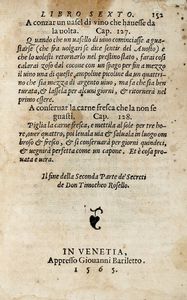 LIBRO SESTO. 152
A conzar un uasel di uino che hauesse da
la uolta. Cap. 127.
Quando che un uasello di uino cominciasse a guastarse
(che fra uolgari se dice sentir del Amosto) e
che lo uolesti retornarlo nel prestino stato, farai cosi
calarai zoso dal cocone con un spago per fin a mezzo
il uino una di queste, ampoline piccoline da un quattrino
che sia mezza di argento uiuo, ma che sia bene serrata,
& lassela per alcuni giorni, & ritornerà nel
primo essere.
A conseruar la carne fresca che la non se
guasti. Cap. 128.
Piglia la carne fresca, e mettila al sole per tre hore,
ouer quattro, poi leuala uia & saluala in luogo ombroso
& fresco, & si conseruarà per giorni quindeci,
& uegnirà perfetta come un capone. Et è cosa prouata
e uera.
Il fine della Seconda Parte de' Secreti
de Don Timotheo Rosello.
IN VENETIA,
Appresso Giouanni Bariletto.
1565.